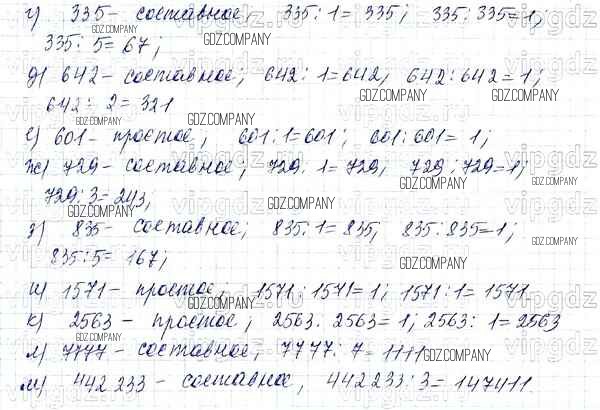 г) 335 – составное, 335 : 1 = 335; 335 : 335 = 1;
335 : 5 = 67;
д) 642 – составное; 642 : 1 = 642, 642 : 642 = 1;
642 : 2 = 321
е) 601 – простое, 601 : 1 = 601; 601 : 601 = 1;
ж) 729 – составное, 729 : 1 = 729, 729 : 729 = 1;
729 : 3 = 243,
з) 835 – составное; 835 : 1 = 835, 835 : 835 = 1;
835 : 5 = 167;
и) 1571 – простое, 1571 : 1571 = 1; 1571 : 1 = 1571
к) 2563 – простое, 2563 : 2563 = 1; 2563 : 1 = 2563
л) 7777 – составное, 7777 : 7 = 1111
м) 442 233 – составное, 442 233 : 3 = 147411.
GDZ.COMPANY
vipgdz.ru